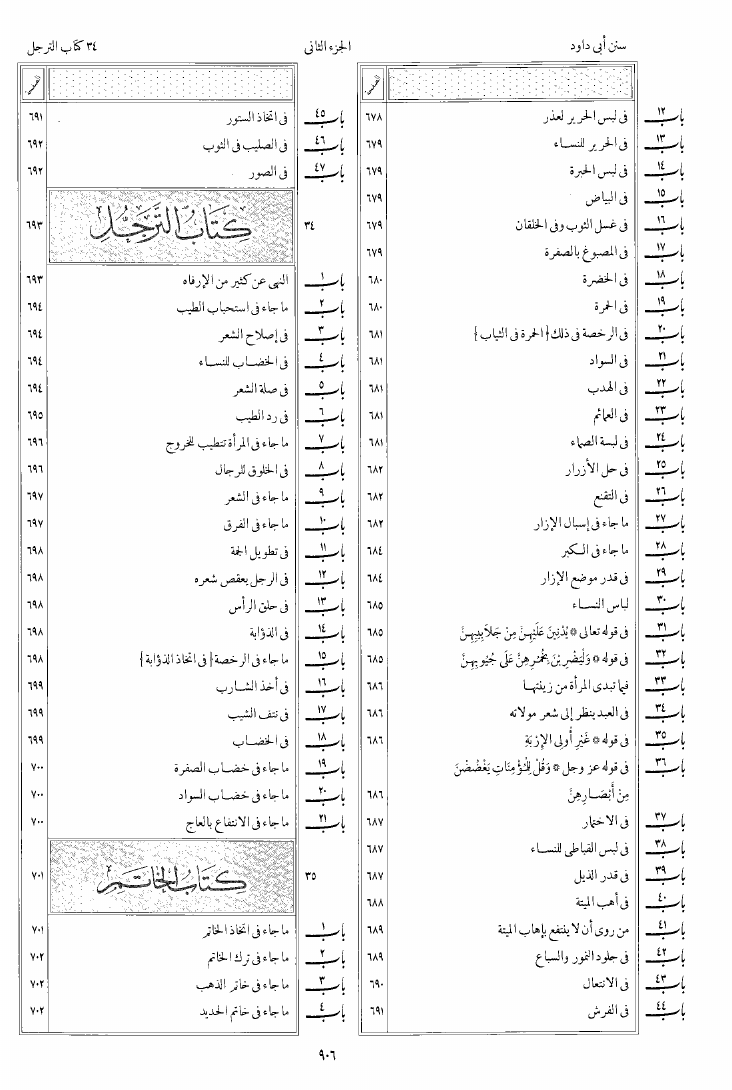 سنن أبى داود
الجزء الثانى
٣٤ كتاب الترجل
الصفحة
باب ١٢ فى لبس الحرير لعذر ٦٧٨
باب ١٣ فى الحرير للنساء ٦٧٩
باب ١٤ فى لبس الحبرة ٦٧٩
باب ١٥ فى البياض ٦٧٩
باب ١٦ فى غسل الثوب وفى الخلقان ٦٧٩
باب ١٧ فى المصبوغ بالصفرة ٦٧٩
باب ١٨ فى الخضرة ٦٨٠
باب ١٩ فى الحمرة ٦٨٠
باب ٢٠ فى الرخصة فى ذلك {الحمرة فى الثياب} ٦٨١
باب ٢١ فى السواد ٦٨١
باب ٢٢ فى الهدب ٦٨١
باب ٢٣ فى العمائم ٦٨١
باب ٢٤ فى لبسة الصماء ٦٨١
باب ٢٥ فى حل الأزرار ٦٨٢
باب ٢٦ فى التقنع ٦٨٢
باب ٢٧ ما جاء فى إسبال الإزار ٦٨٢
باب ٢٨ ما جاء فى الكبر ٦٨٤
باب ٢٩ فى قدر موضع الإزار ٦٨٤
باب ٣٠ لباس النساء ٦٨٥
باب ٣١ فى قوله تعالى * يُدْنِينَ عَلَيْهِنَّ مِنْ جَلاَبِيبِهِنَّ ٦٨٥
باب ٣٢ فى قوله * وَلْيَضْرِبْنَ بِخُمُرِهِنَّ عَلَى جُيُوبِهِنَّ ٦٨٥
باب ٣٣ فيما تبدى المرأة من زينتها ٦٨٦
باب ٣٤ فى العبد ينظر إلى شعر مولاته ٦٨٦
باب ٣٥ فى قوله * غَيْرِ أُولِى الإِرْبَةِ ٦٨٦
باب ٣٦ فى قوله عز وجل * وَقُلْ لِلْمُؤْمِنَاتِ يَغْضُضْنَ
مِنْ أَبْصَارِهِنَّ ٦٨٦
باب ٣٧ فى الاختمار ٦٨٧
باب ٣٨ فى لبس القباطى للنساء ٦٨٧
باب ٣٩ فى قدر الذيل ٦٨٧
باب ٤٠ فى أهب الميتة ٦٨٨
باب ٤١ من روى أن لا ينتفع بإهاب الميتة ٦٨٩
باب ٤٢ فى جلود النمور والسباع ٦٨٩
باب ٤٣ فى الانتعال ٦٩٠
باب ٤٤ فى الفرش ٦٩١
الصفحة
باب ٤٥ فى اتخاذ الستور ٦٩١
باب ٤٦ فى الصليب فى الثوب ٦٩٢
باب ٤٧ فى الصور ٦٩٢
٣٤ كِتَابُ التَّرَجُّلِ ٦٩٣
باب ١ النهى عن كثير من الإرفاه ٦٩٣
باب ٢ ما جاء فى استحباب الطيب ٦٩٤
باب ٣ فى إصلاح الشعر ٦٩٤
باب ٤ فى الخضاب للنساء ٦٩٤
باب ٥ فى صلة الشعر ٦٩٤
باب ٦ فى رد الطيب ٦٩٥
باب ٧ ما جاء فى المرأة تتطيب للخروج ٦٩٦
باب ٨ فى الخلوق للرجال ٦٩٦
باب ٩ ما جاء فى الشعر ٦٩٧
باب ١٠ ما جاء فى الفرق ٦٩٧
باب ١١ فى تطويل الجمة ٦٩٨
باب ١٢ فى الرجل يعقص شعره ٦٩٨
باب ١٣ فى حلق الرأس ٦٩٨
باب ١٤ فى الذؤابة ٦٩٨
باب ١٥ ما جاء فى الرخصة {فى اتخاذ الذؤابة} ٦٩٨
باب ١٦ فى أخذ الشارب ٦٩٩
باب ١٧ فى نتف الشيب ٦٩٩
باب ١٨ فى الخضاب ٦٩٩
باب ١٩ ما جاء فى خضاب الصفرة ٧٠٠
باب ٢٠ ما جاء فى خضاب السواد ٧٠٠
باب ٢١ ما جاء فى الانتفاع بالعاج ٧٠٠
٣٥ كِتَابُ الخَاتَمِ ٧٠١
باب ١ ما جاء فى اتخاذ الخاتم ٧٠١
باب ٢ ما جاء فى ترك الخاتم ٧٠٢
باب ٣ ما جاء فى خاتم الذهب ٧٠٢
باب ٤ ما جاء فى خاتم الحديد ٧٠٢
٩٠٦